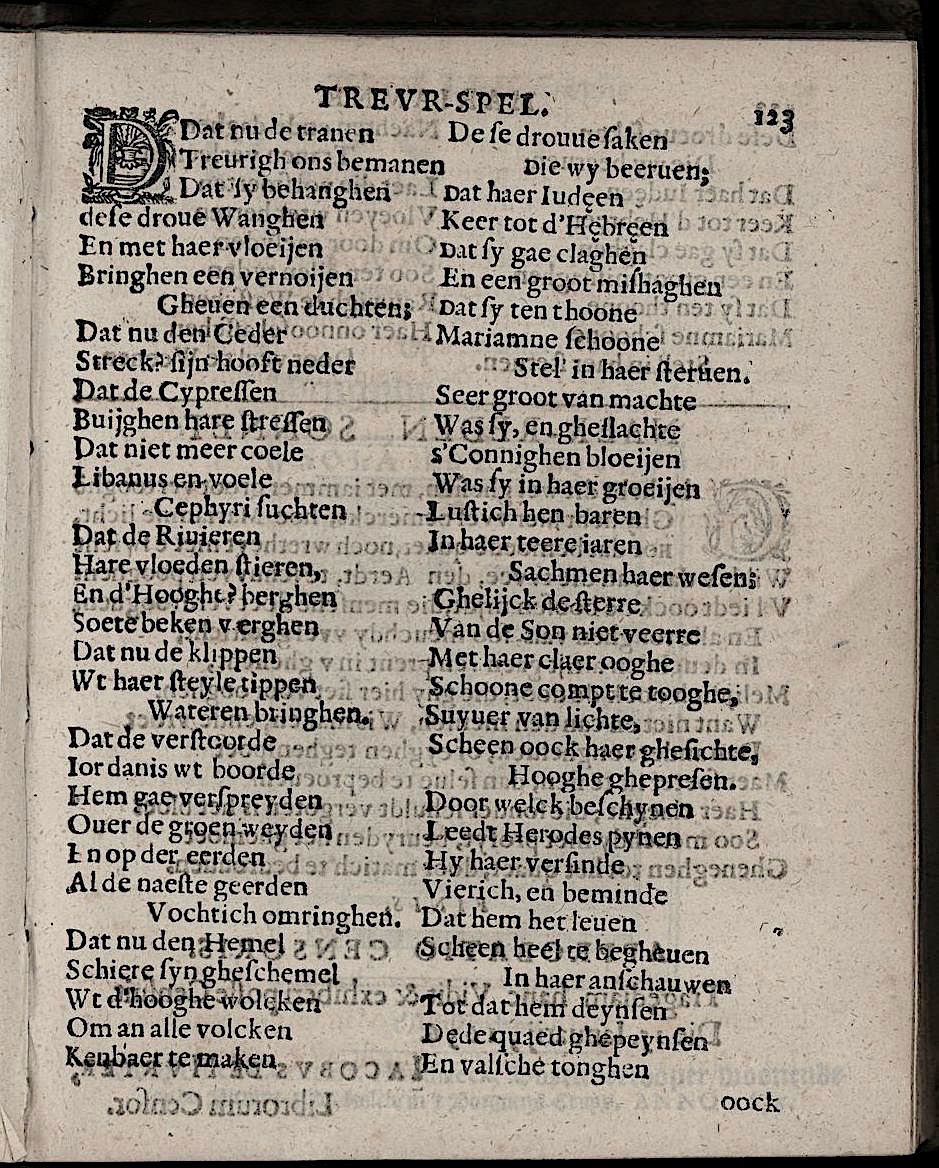 TREVR-SPEL.
123
Dat nu de tranen
Treurigh ons bemanen
Dat sy behanghen
dese drouē Wanghen
En met haer vloeijen
Bringhen een vernoijen
Gheuen een duchten;
Dat nu den Ceder
Streck? sijn hooft neder
Dat de Cypressen
Buijghen hare stressen
Dat niet meer coele
Libanus en voele
Cephyri suchten
Dat de Riuieren
Hare vloeden stieren,
En d'Hooght? berghen
Soete beken verghen
Dat nu de klippen
Wt haer steyle tippen
Wateren bringhen.
Dat de verstoorde
Iordanis wt boorde
Hem gae verspreyden
Ouer de groen weyden
En op der eerden
Al de naeste geerden
Vochtich omringhen.
Dat nu den Hemel
Schiere syn gheschemel
Wt d'hooghe wolcken
Om an alle volcken
Kenbaer te maken
De se drouue saken
Die wy beeruen;
Dat haer Iudęen
Keer tot d'Hębręen
Dat sy gae claghen
En een groot mishaghen
Dat sy ten thoone
Mariamne schoone
Stel in haer steruen.
Seer groot van machte
Was sy, en gheslachte
s'Connighen bloeijen
Was sy in haer groeijen
Lustich hen baren
In haer teere iaren
Sachmen haer wesen;
Ghelijck de sterre
Van de Son niet veerre
Met haer claer ooghe
Schoone compt te tooghe,
Suyuer van lichte,
Scheen oock haer ghesichte,
Hooghe ghepresen.
Door welck beschynen
Leedt Herodes pynen
Hy haer versinde
Vierich, en beminde
Dat hem het leuen
Scheen heel te begheuen
In haer anschauwen
Tot dat hem deynsen
Dede quaed ghepeynsen
En valsche tonghen
oock